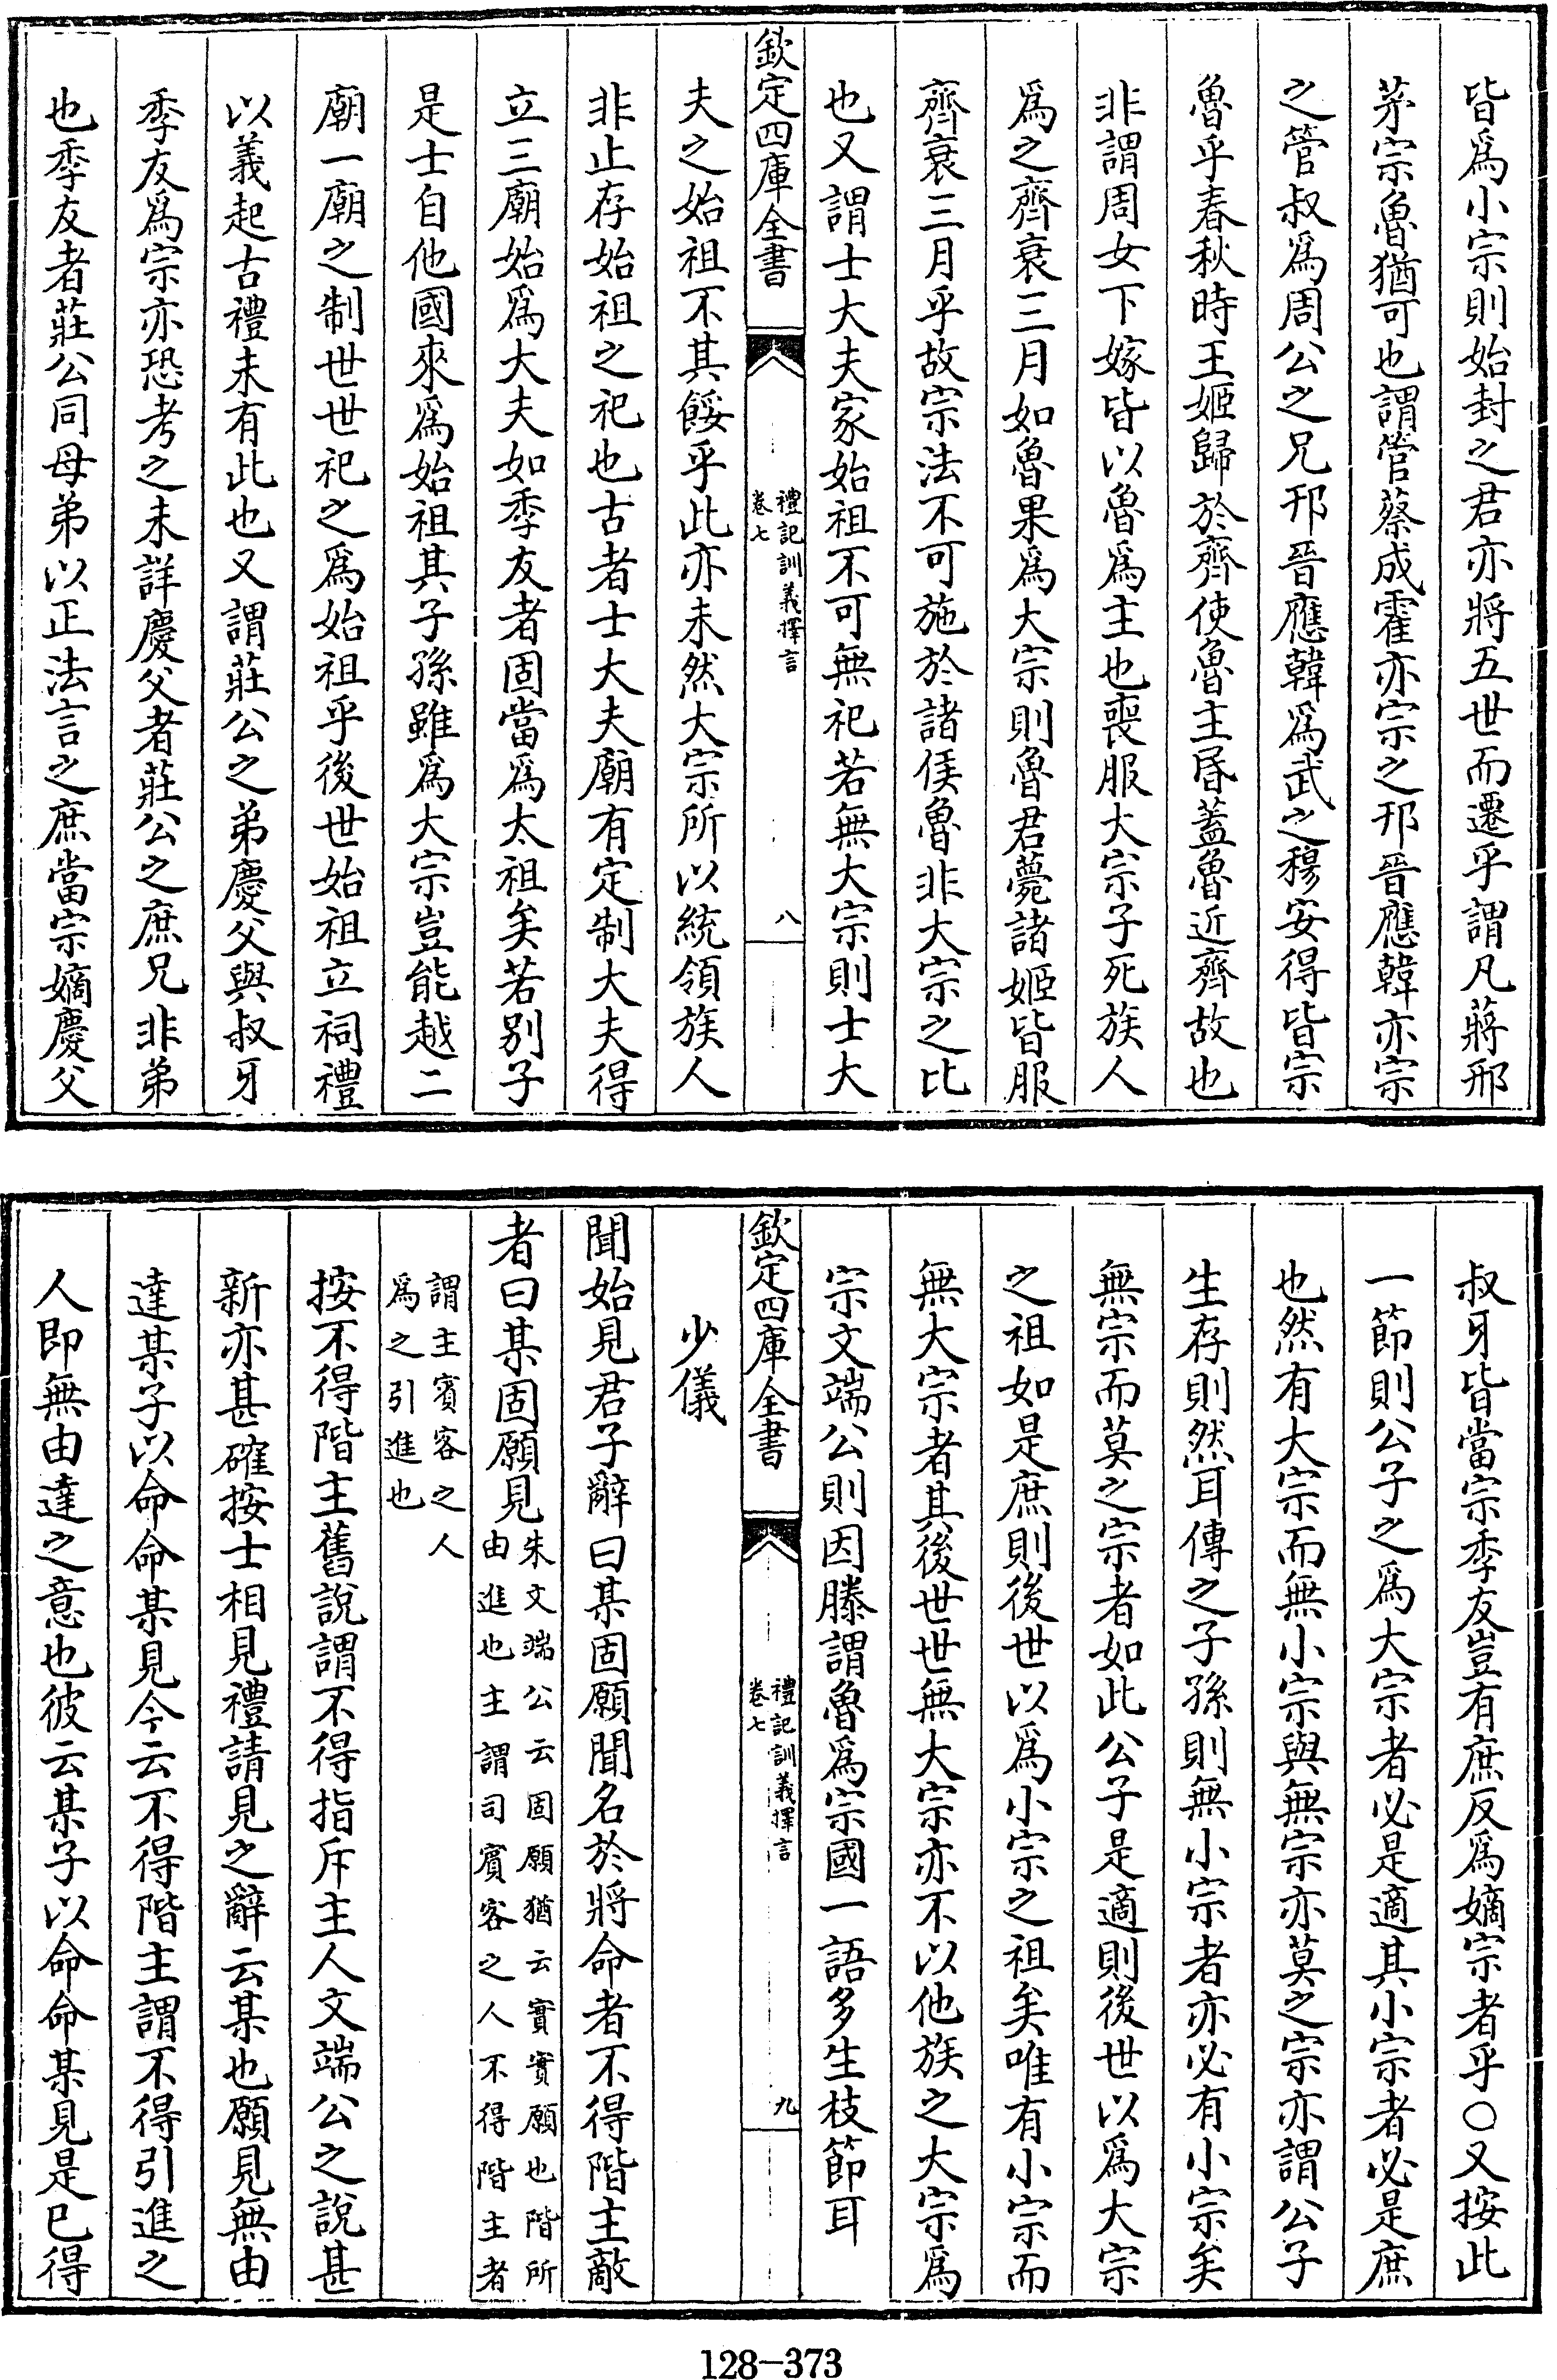 皆爲小宗則始封之君亦將五世而遷乎謂凡蔣邢
茅宗魯猶可也謂管蔡成霍亦宗之邘晉應韓亦宗
之管叔爲周公之兄邘晉應韓爲武之穆安得皆宗
魯乎春秋時王姬歸於齊使魯主昏蓋魯近齊故也
非謂周女下嫁皆以魯爲主也喪服大宗子死族人
爲之齊衰三月如魯果爲大宗則魯君薨諸姬皆服
齊衰三月乎故宗法不可施於諸侯魯非大宗之比
也又謂士大夫家始祖不可無祀若無大宗則士大
欽定四庫全書
禮記訓義擇言
卷七
八
夫之始祖不其餒乎此亦未然大宗所以統領族人
非止存始祖之祀也古者士大夫廟有定制大夫得
立三廟始爲大夫如季友者固當爲太祖矣若别子
是士自他國來爲始祖其子孫雖爲大宗豈能越二
廟一廟之制世世祀之爲始祖乎後世始祖立祠禮
以義起古禮未有此也又謂莊公之弟慶父與叔牙
季友爲宗亦恐考之未詳慶父者莊公之庶兄非弟
也季友者莊公同母弟以正法言之庶當宗嫡慶父
叔牙皆當宗季友豈有庶反爲嫡宗者乎○又按此
一節則公子之爲大宗者必是適其小宗者必是庶
也然有大宗而無小宗與無宗亦莫之宗亦謂公子
生存則然耳傳之子孫則無小宗者亦必有小宗矣
無宗而莫之宗者如此公子是適則後世以爲大宗
之祖如是庶則後世以爲小宗之祖矣唯有小宗而
無大宗者其後世世無大宗亦不以他族之大宗爲
宗文端公則因滕謂魯爲宗國一語多生枝節耳
欽定四庫全書
禮記訓義擇言
卷七
九
少儀
聞始見君子辭曰某固願聞名於將命者不得階主敵
者曰某固願見
朱文端公云固願猶云實實願也階所
由進也主謂司賓客之人不得階主者
謂主賓客之人
爲之引進也
按不得階主舊說謂不得指斥主人文端公之說甚
新亦甚確按士相見禮請見之辭云某也願見無由
達某子以命命某見今云不得階主謂不得引進之
人即無由達之意也彼云某子以命命某見是已得
128-373